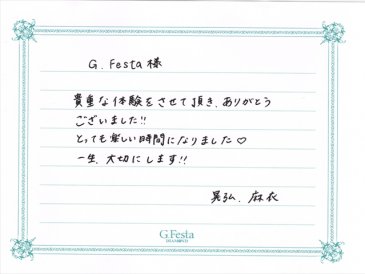 G.Festa様
貴重な体験をさせて頂き、ありがとう
ございました!!
とっても楽しい時間になりました♡
一生、大切にします!!
晃弘、麻衣
G.Festa
DIAMOND